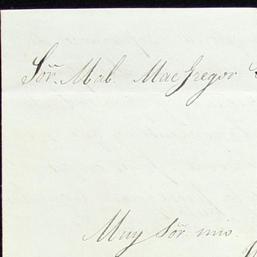 Sõr. Mal. MacGregor
Muy Sõr mio.